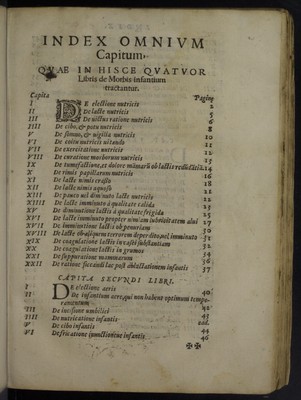 INDEX OMNIVM
Capitum,
QVAE IN HISCE QVATVOR
Libris de Morbis infantium
tractantur.
Capita Pagine
I DE electione nutricis 2
II De lacte nutricis 5
III De victus ratione nutricis 6
IIII De cibo, & potu nutricis 8
V De somno, & vigilia nutricis 10
VI De coitu nutricis vitando 11
VII De exercitatione nutricis 12
VIII De curatione morborum nutricis 13
IX De tumefactione, et dolore mămarū ob lactis redūdātiā 14
X De rimis papillarum nutricis 16
XI De lacte nimis crasso 18
XII De lacte nimis aquoso 21
XIII De pauco uel diminuto lacte nutricis
XIIII De lacte imminuto à qualitate calida
XV De diminutione lactis à qualitate frigida 25
XVI De lacte imminuto propter nimiam mobilitatem alui 27
XVII De imminutione lactis ob penuriam 30
XVIII De lacte ob aliquem terrorem deperdito uel imminuto
XIX De coagulatione lactis in casei substantiam
XX De coagulatione lactis in grumos 34
XXI De suppuratione mammarum 36
XXII De ratione siccandi lac post ablactationem infantis 37
CAPITA SECVNDI LIBRI.
I DE electione aeris
II De infantium aere, qui non habent optimum tempe- 40
ramentum
III De incisione umbilici 42
IIII De nutricatione infantis 43
V De cibo infantis eod.
VI De fricatione iunctionéque infantis 44
46